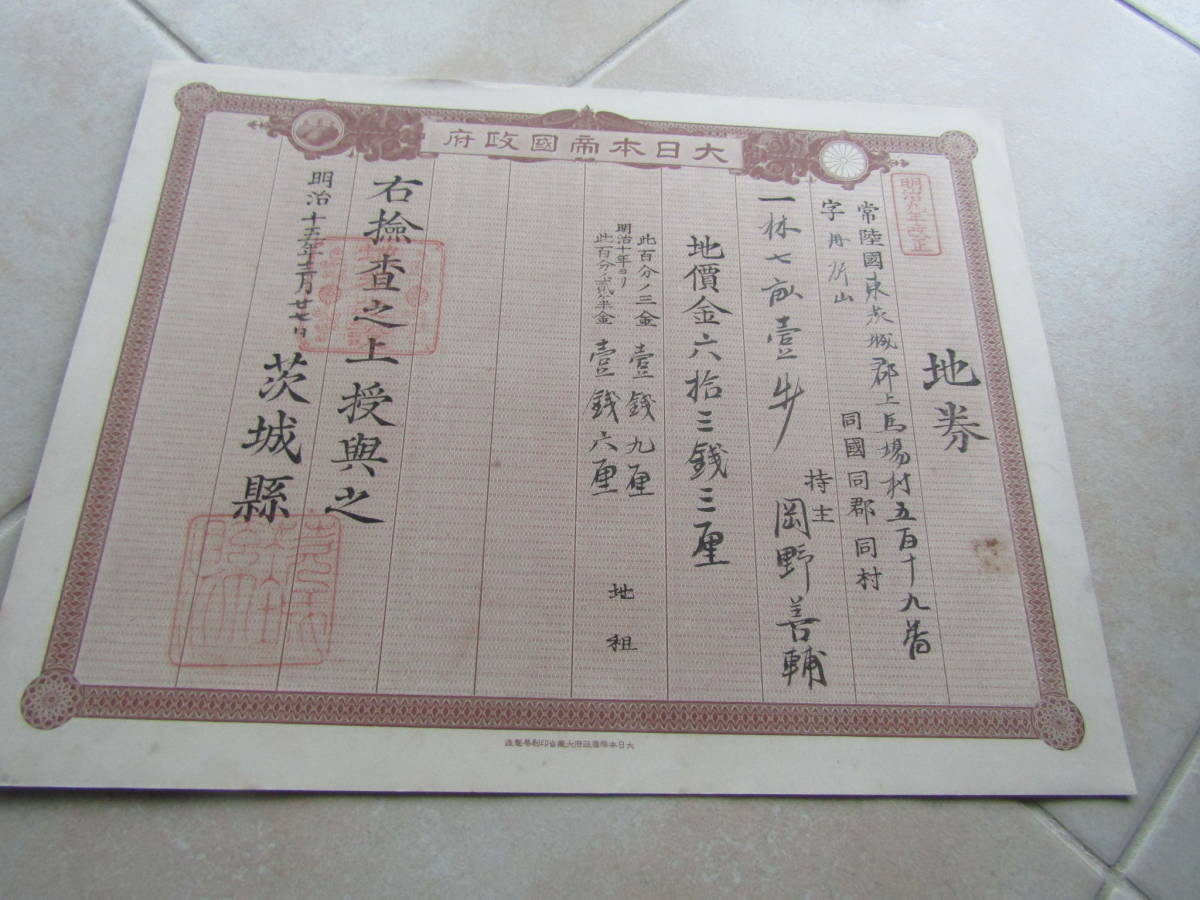 大日本帝國政府
地券
常陸國東茨城郡上馬場村五百十九番
字
同國同郡同村
持主 岡野善輔
一林七畝壹歩
地價金六拾三錢三厘
此百分ノ三金 壹錢九厘
明治十年ヨリ
此百分ノ貳ケ半金 壹錢六厘
地租
右撿査之上授與之
明治十三年十二月廿七日
茨城縣
大日本帝國政府大藏省印刷局製造